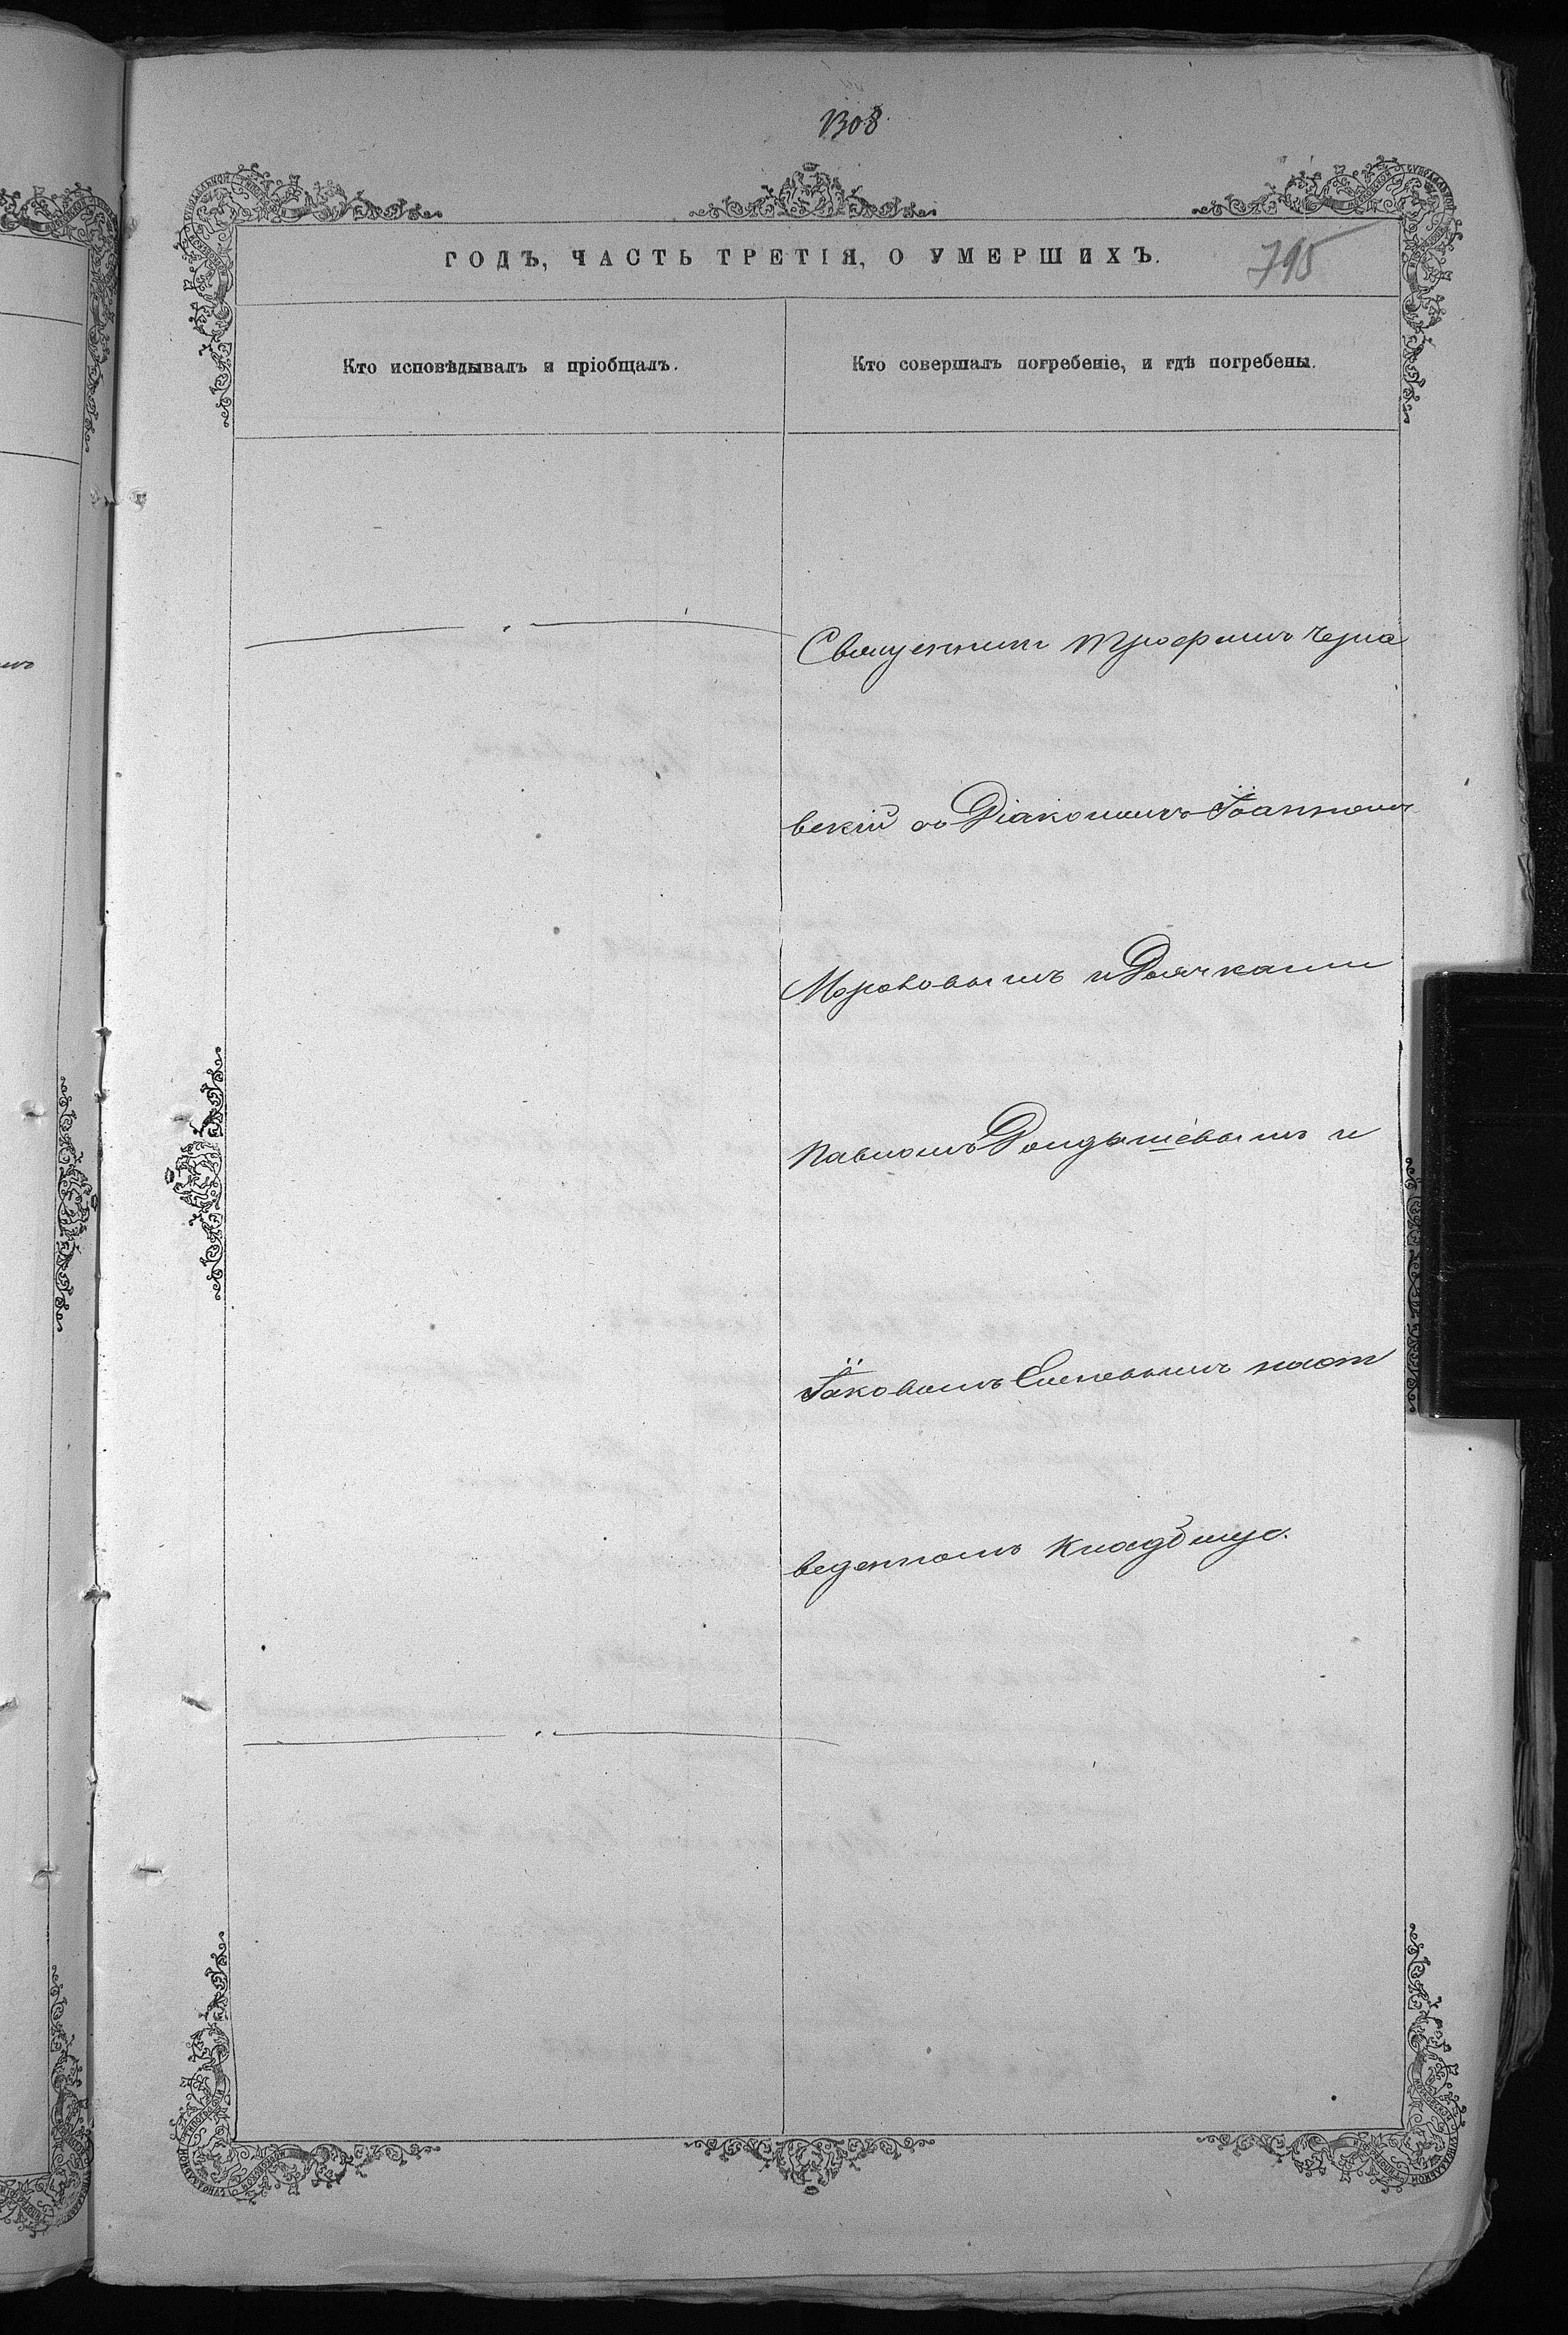 1308
ГОДЪ, ЧАСТЬ ТРЕТІЯ, О УМЕРШИХЪ.
795
Кто исповѣдывалъ и пріобщалъ.
Кто совершалъ погребеніе, и гдѣ погребены.
Священникъ Трофимъ Черна
вскій съ Діакономъ Іоанномъ
Морозовымъ и Дьячками
Павломъ и
Іаковомъ на от
веденномъ кладбищѣ.